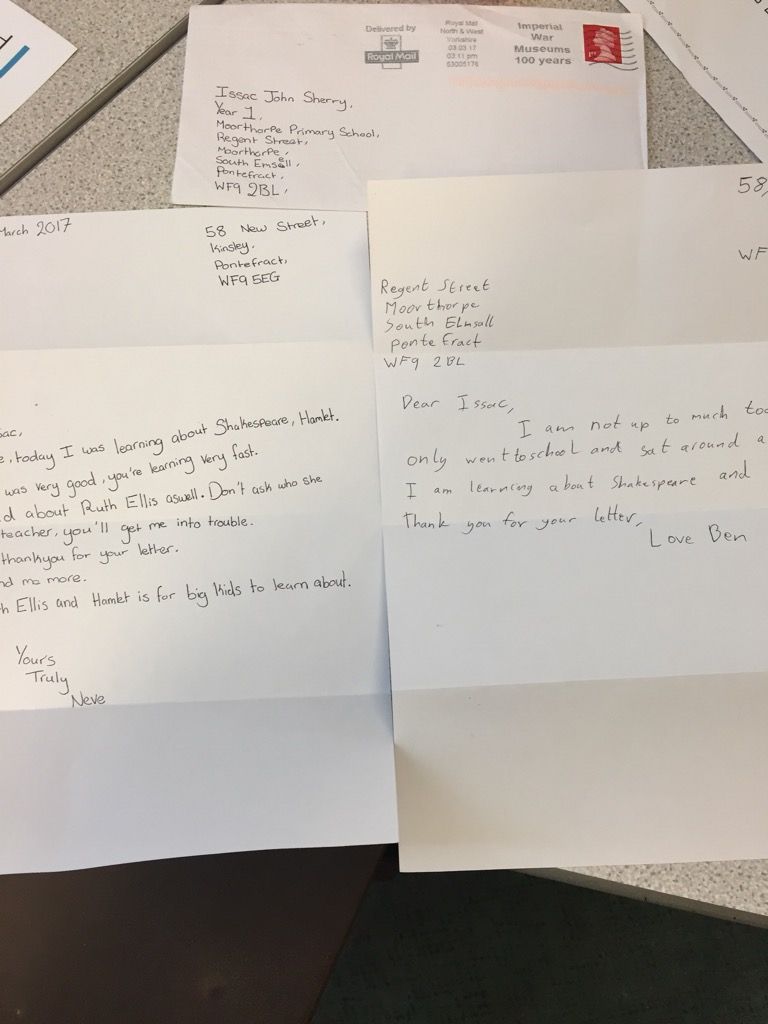 Delivered by
Royal Mail
Royal Mail
North & West
Yorkshire
03.03.17
03:11 pm
53005176
Imperial
War
Museums
100 years
1ST
Issac John Sherry,
Year 1,
Moorthorpe Primary School,
Regent Street,
Moorthorpe,
South Emsall,
Pontefract,
WF9 2BL,
March 2017
58 New Street,
Kinsley,
Pontefract,
WF9 5EG
sac,
e, today I was learning about Shakespeare, Hamlet.
was very good, you're learning very fast.
d about Ruth Ellis aswell. Don't ask who she
teacher, you'll get me into trouble.
thankyou for your letter.
nd me more.
h Ellis and Hamlet is for big kids to learn about.
Yours
Truly
Neve
58,
WF
Regent Street
Moorthorpe
South Elmsall
Pontefract
WF9 2BL
Dear Issac,
I am not up to much too
only went to school and sat around a
I am learning about Shakespeare and
Thank you for your letter,
Love Ben